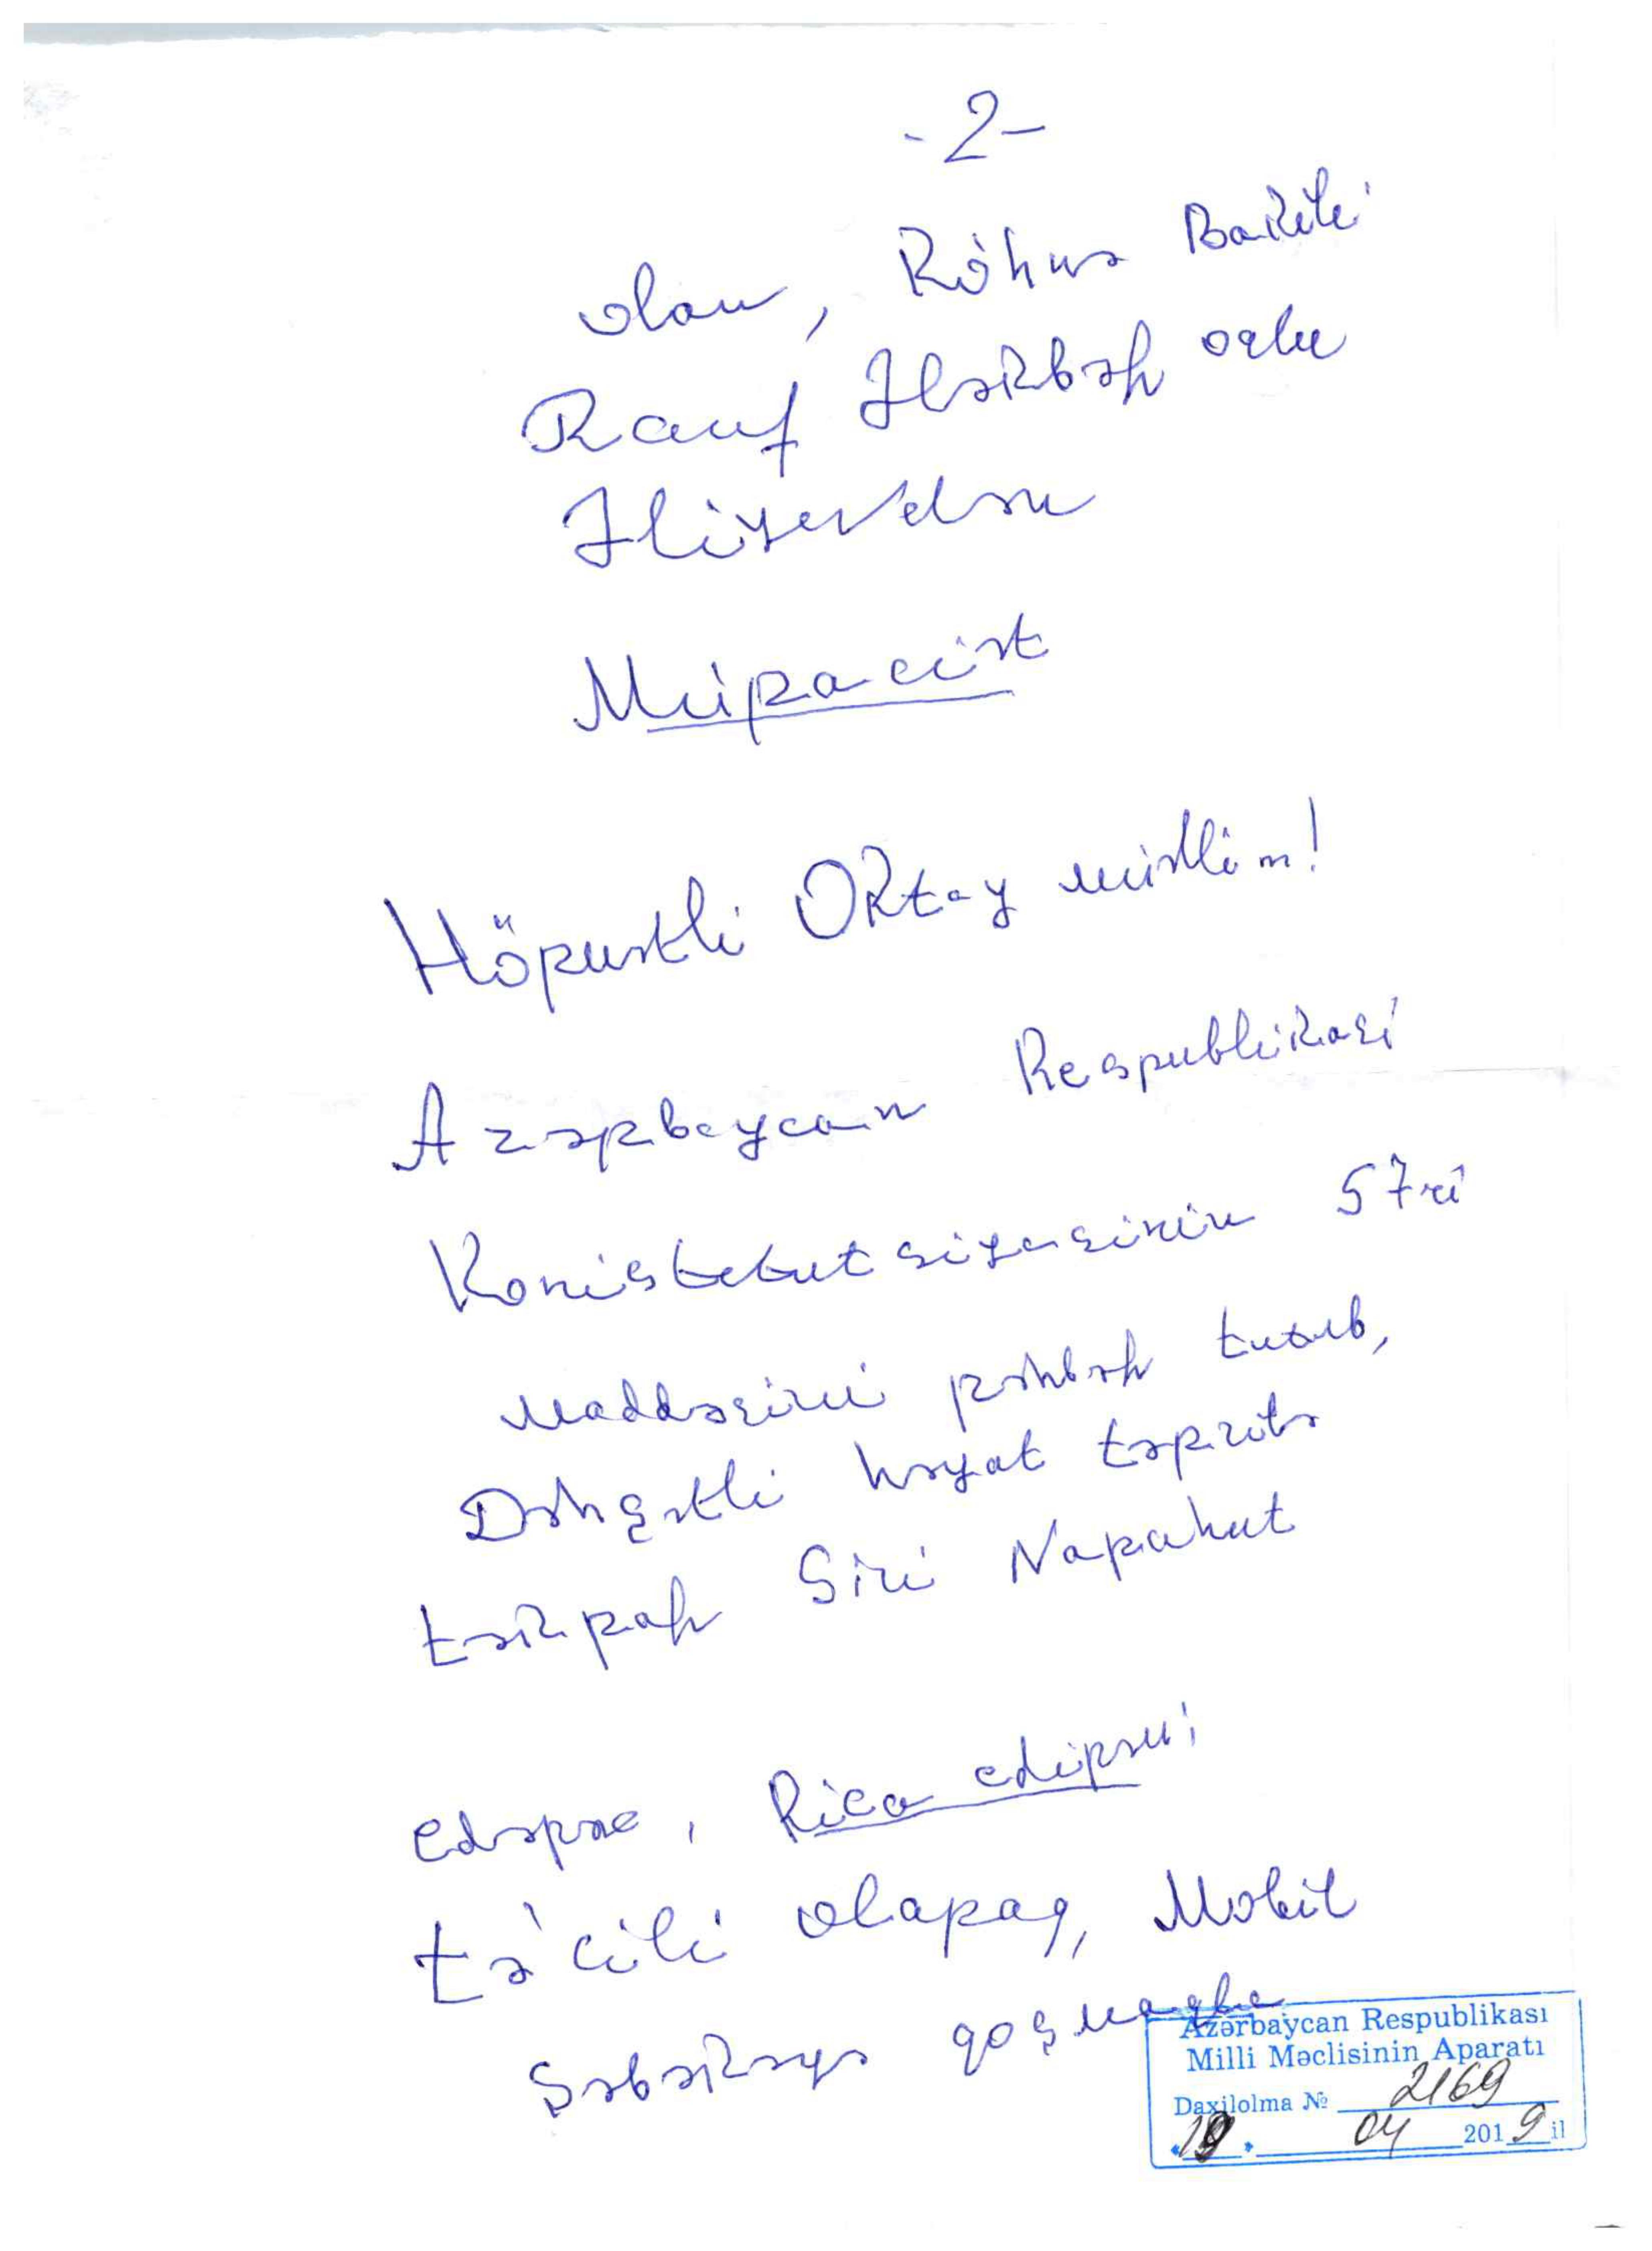 -2-
olan, Köhnə Bakili
Rauf Ələkbər oglu
Əliyevdən
Müraciət
Hörmətli Oktay müəllim!
Azərbaycan Respublikasi
Konistitutsiyasinin 57ni
maddəsini rəhbər tutub,
Dəhşətli həyat tərzilə
təkrar Sizi Narahat
edərəm, Rica edirəm;
tə'cili olaraq, Mobil
Şəbəkəyə qoşmaqla
Azərbaycan Respublikası
Milli Məclisinin Aparatı
Daxilolma № 2169
«19» 04 2019 il